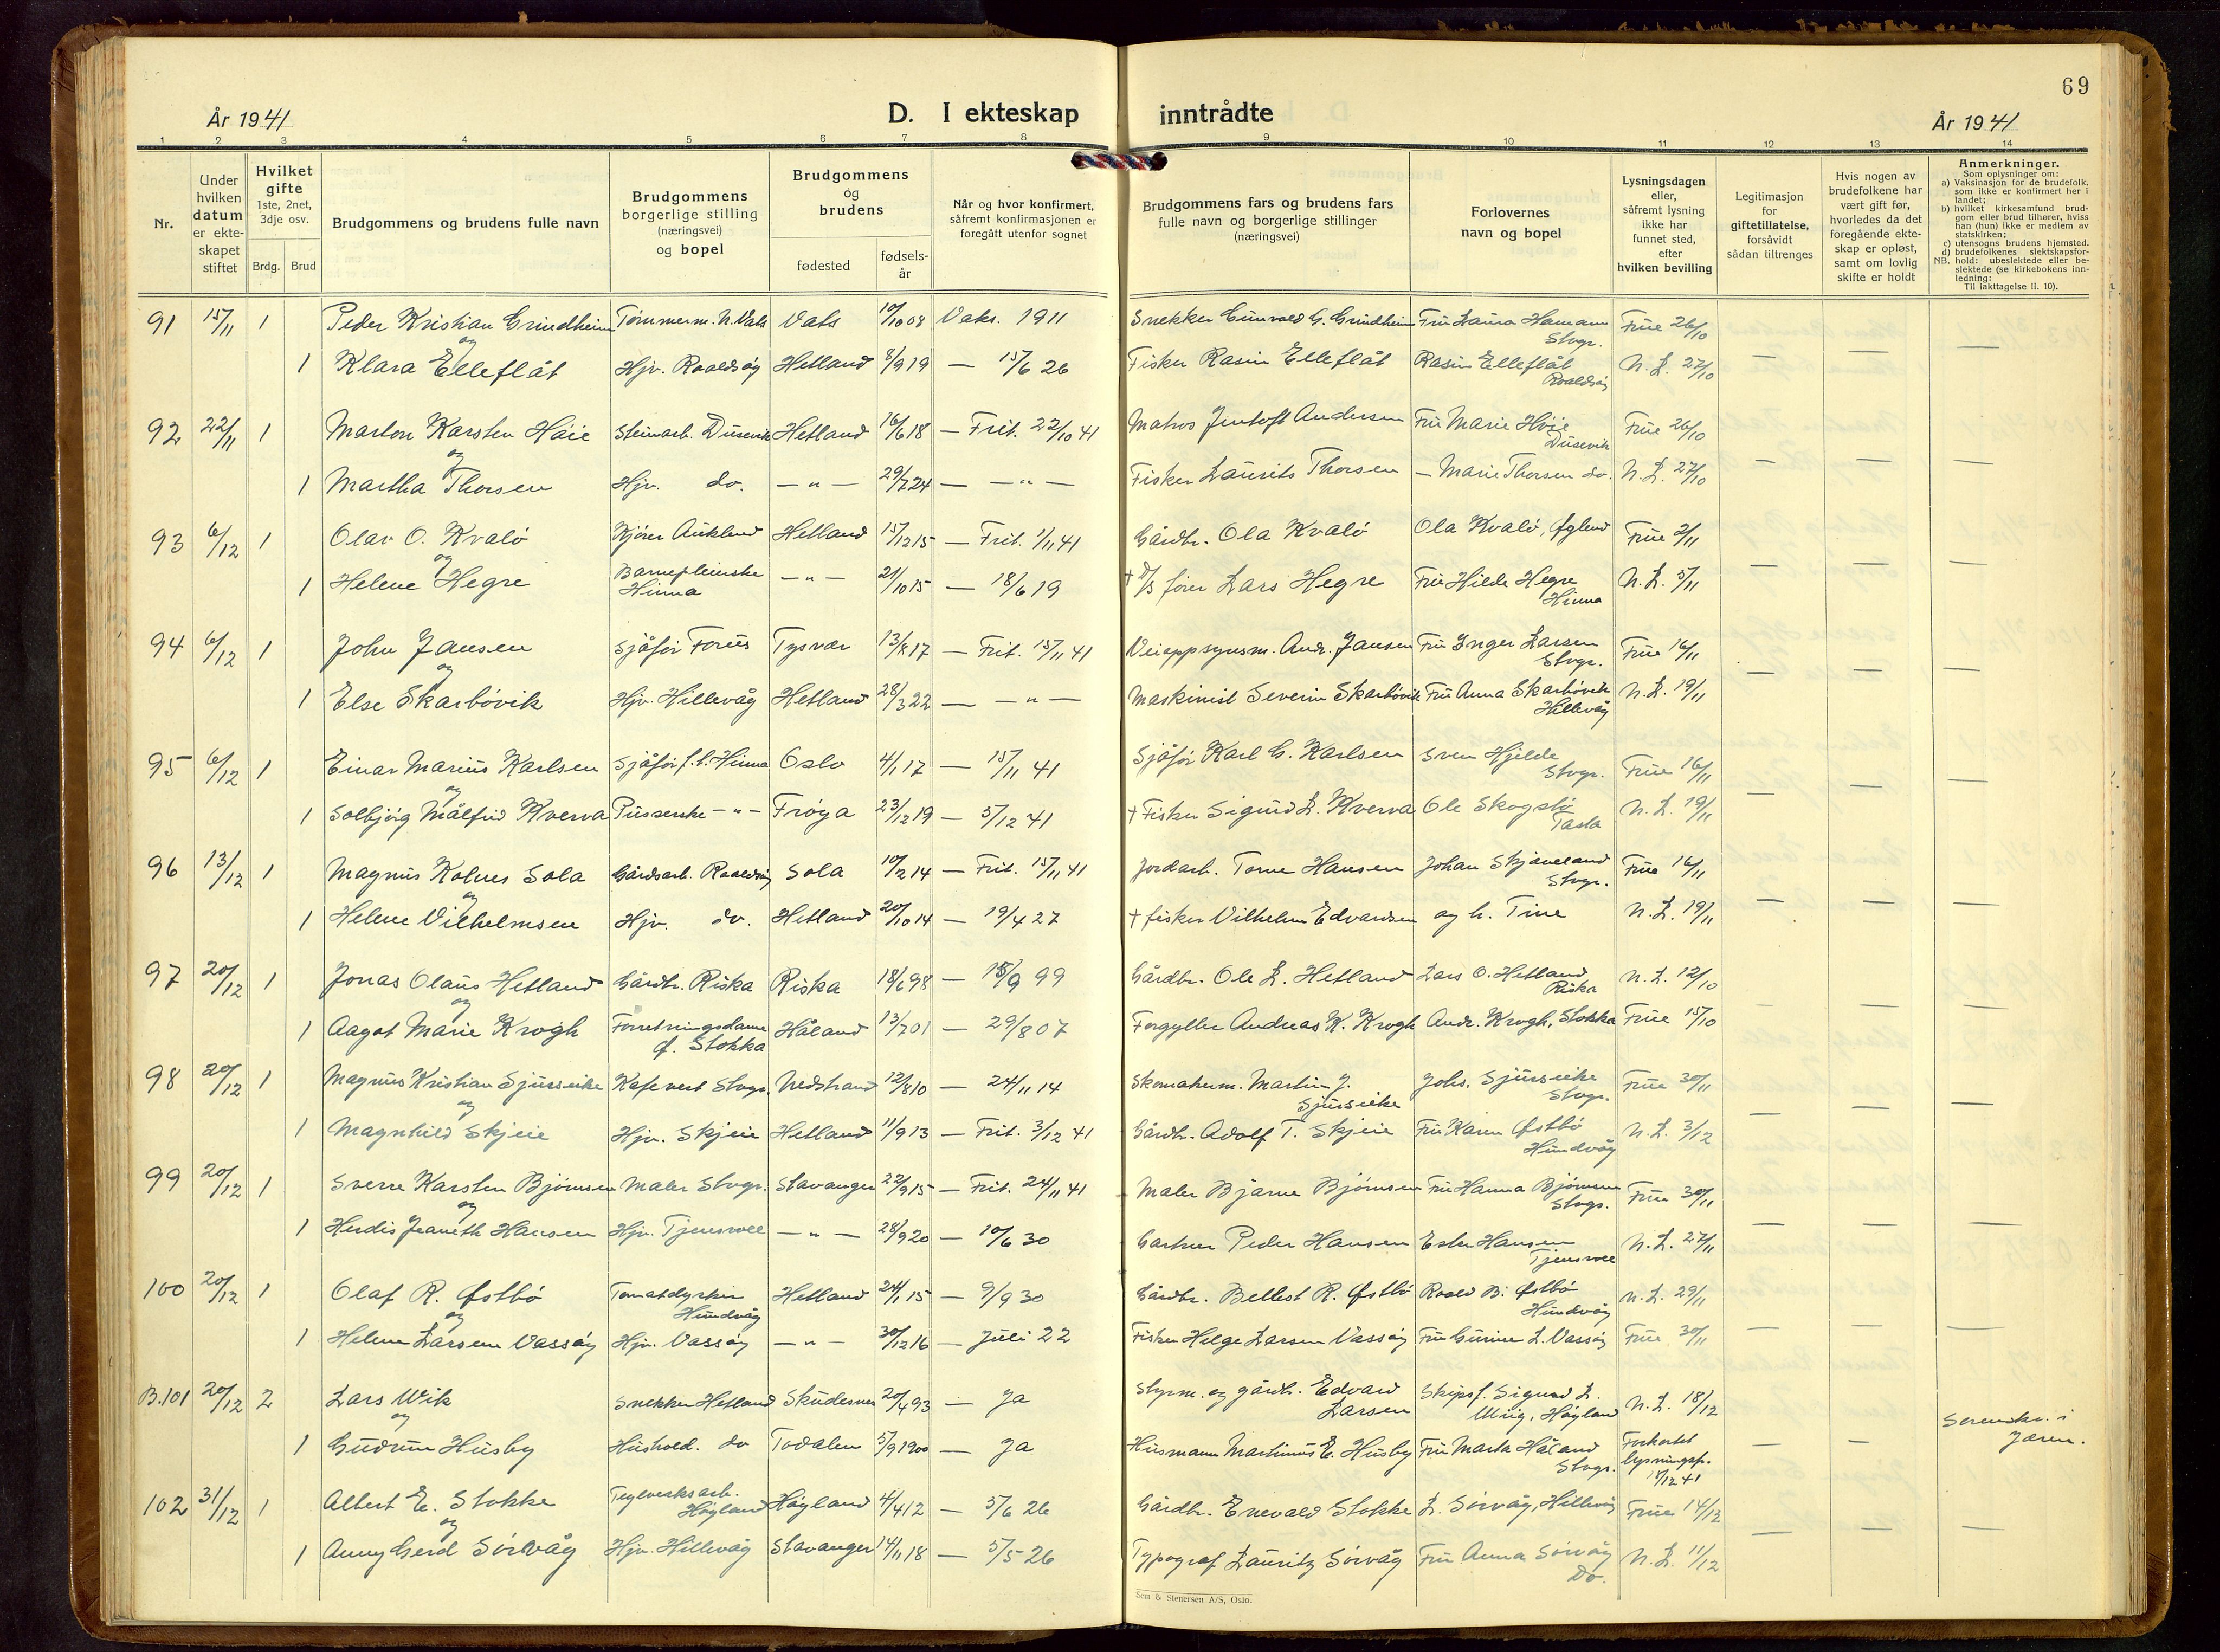 69
År 1941
D. I ekteskap inntrådte
År 1941
1 2 3 4 5 6 7 8 9 10 11 12 13 14
Nr.
Under hvilken datum er ekteskapet stiftet
Hvilket gifte 1ste, 2net, 3dje osv.
Brdg. Brud
Brudgommens og brudens fulle navn
Brudgommens borgerlige stilling (næringsvei) og bopel
Brudgommens og brudens
fødested
fødselsår
Når og hvor konfirmert, såfremt konfirmasjonen er foregått utenfor sognet
Brudgommens fars og brudens fars fulle navn og borgerlige stillinger (næringsvei)
Forlovernes navn og bopel
Lysningsdagen eller, såfremt lysning ikke har funnet sted, efter hvilken bevilling
Legitimasjon for giftetillatelse, forsåvidt sådan tiltrenges
Hvis nogen av brudefolkene har vært gift før, hvorledes da det foregående ekteskap er opløst, samt om lovlig skifte er holdt
Anmerkninger.
Som oplysninger om:
a) Vaksinasjon for de brudefolk, som ikke er konfirmert her i landet;
b) hvilket kirkesamfund brudgom eller brud tilhører, hviss han (hun) ikke er medlem av statskirken;
c) utensogns brudens hjemsted.
d) brudefolkenes slektskapsforhold: ubeslektede eller beslektede (se kirkebokens innledning;
NB.
Til iakttagelse II. 10).
91 15/11 1 Peder Kristian Grindheim Tømmerm. N. Vats Vats 10/10 08 Vaks. 1911 Snekker Gunvald G. Grindheim Fru Laura Hamann Stvgr. Frue 26/10
og
1 Klara Elleflåt Hjv. Roaldsøy Hetland 8/9 19 — 15/6 26 Fisker Rasin Elleflåt Rasin Elleflåt Roaldsøy N. L. 27/10 — — —
92 22/11 1 Marton Karsten Høie Steinarb. Dusevik Hetland 16/6 18 — Frit. 22/10 41 Matros Jentoft Andersen Fru Marie Høie Dusevik Frue 26/10
og
1 Martha Thorsen Hjv. do. — " — 29/7 24 — — " — Fisker Laurits Thorsen — Marie Thorsen do. N. L. 27/10 — — —
93 6/12 1 Olav O. Kvalø Kjører Aukland Hetland 15/12 15 — Frit. 1/11 41 Gårdbr. Ola Kvalø Ola Kvalø, Øglend Frue 2/11
og
1 Helene Hegre Barnepleierske Hinna — " — 21/10 15 — 18/6 19 † D/S fører Lars Hegre Fru Hilde Hegre Hinna N. L. 5/11 — — —
94 6/12 1 John Jansen Sjåfør Forus Tysvær 13/8 17 — Frit. 15/11 41 Veioppsynsm. Andr. Jansen Fru Inger Larsen Stvgr. Frue 16/11
og
1 Else Skarbøvik Hjv. Hillevåg Hetland 28/3 22 — — " — Maskinist Severin Skarbøvik Fru Anna Skarbøvik Hillevåg N. L. 19/11 — — —
95 6/12 1 Einar Marius Karlsen Sjåfør f. t. Hinna Oslo 4/1 17 — 15/11 41 Sjåfør Karl G. Karlsen Sven Hjelde Stvgr. Frue 16/11
og
1 Solbjørg Målfrid Kverva Pusserske — " — Frøya 23/12 19 — 5/12 41 † Fisker Sigurd L. Kverva Ole Skogstø Tasta N. L. 19/11 — — —
96 13/12 1 Magnus Kolnes Sola Gårdsarb. Roaldsøy Sola 10/2 14 — Frit. 15/11 41 Jordarb. Torne Hansen Johan Skjæveland Stvgr. Frue 16/11
og
1 Helene Vilhelmsen Hjv. do. Hetland 20/10 14 — 19/4 27 † fisker Vilhelm Edvardsen og h. Tine N. L. 19/11 — — —
97 20/12 1 Jonas Olaus Hetland Gårdbr. Riska Riska 18/6 98 — 15/9 99 Gårdbr. Ole L. Hetland Lars O. Hetland Riska N. L. 12/10
og
1 Aagot Marie Krogh Forretningsdame Ø. Stokka Håland 13/7 01 — 29/8 07 Forgyller Andreas K. Krogh Andr. Krogh, Stokka Frue 15/10 — — —
98 20/12 1 Magnus Kristian Sjurseike Kafevert Stvgr. Nedstrand 12/8 10 — 24/11 14 Skomakerm. Martin J. Sjurseike Johs. Sjurseike Stvgr. Frue 30/11
og
1 Magnhild Skjeie Hjv. Skjeie Hetland 11/9 13 — Frit. 3/12 41 Gårdbr. Adolf T. Skjeie Fru Karen Østbø Hundvåg N. L. 3/12 — — —
99 20/12 1 Sverre Karsten Bjørnsen Maler Stvgr. Stavanger 22/9 15 — Frit. 24/11 41 Maler Bjarne Bjørnsen Fru Hanna Bjørnsen Stvgr. Frue 30/11
og
1 Herdis Jeaneth Hansen Hjv. Tjensvoll — " — 28/9 20 — 10/6 30 Gartner Peder Hansen Ester Hansen Tjensvoll N. L. 27/11 — — —
100 20/12 1 Olaf R. Østbø Tomatdyrker Hundvåg Hetland 24/1 15 — 9/9 30 Gårdbr. Bellest R. Østbø Roald B. Østbø Hundvåg N. L. 29/11
og
1 Helene Larsen Vassøy Hjv. Vassøy — " — 30/12 16 — Juli 22 Fisker Helge Larsen Vassøy Fru Gurine L. Vassøy Frue 30/11 — — —
B. 101 20/12 2 Lars Wik Snekker Hetland Skudesnes 20/4 93 — Ja Styrm. og gårdb. Edvard Larsen Skipsf. Sigurd L. Wiig, Høyland N. L. 18/12
og
1 Gudrun Husby Hushold. do Todalen 5/9 1900 — Ja Husmann Martinus E. Husby Fru Marta Håland Stvgr. Forkortet lysningsfr. 18/12 41 — — Sorenskr. i Jæren.
102 31/12 1 Albert E. Stokke Teglverksarb. Høyland Høyland 4/4 12 — 5/6 26 Gårdbr. Enevald Stokke L. Sørvåg, Hillevåg Frue 14/12
og
1 Anny Gerd Sørvåg Hjv. Hillevåg Stavanger 14/11 18 — 5/5 26 Typograf Lauritz Sørvåg Fru Anna Sørvåg Do. N. L. 11/12 — — —
Sem & Stenersen A/S, Oslo.